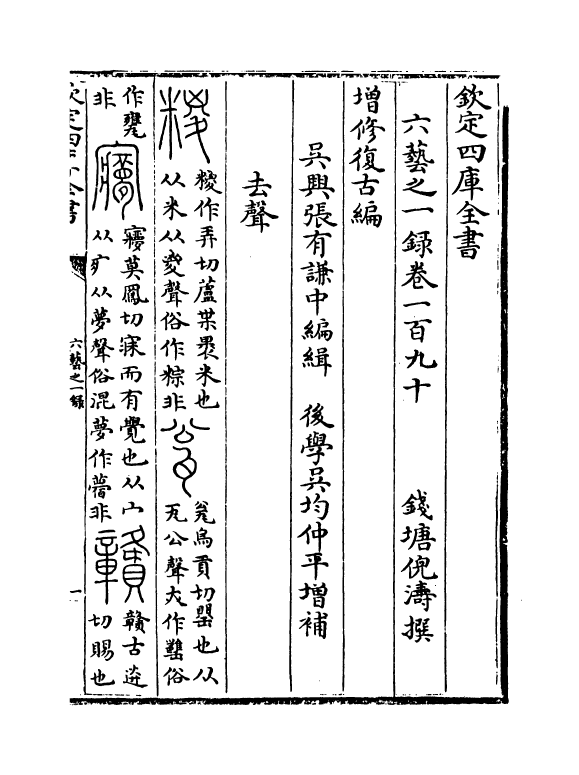 欽定四庫全書
六藝之一録卷一百九十
錢塘倪濤撰
増修復古編
吳興張有謙中編緝　後學吳均仲平増補
去聲
糉
糉作弄切蘆葉褁米也
从米从㚇聲俗作粽非
瓮
瓮烏貢切罌也从
瓦公聲大作罋俗
作甕
非
㝱
寱莫鳳切寐而有覺也从宀
从疒从夢聲俗混夢作瞢非
贛
贛古送
切賜也
欽定四庫全書
六藝之一録
一